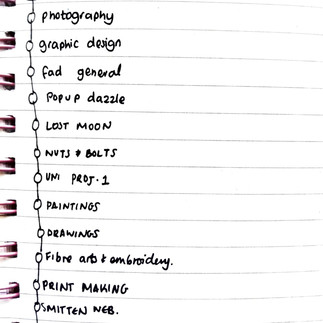 photography
graphic design
fad general
POPUP dazzle
LOST MOON
NUTS & BOLTS
UNI PROJ. 1
PAINTINGS
DRAWINGS
Fibre arts & embroidery.
PRINT MAKING
SMITTEN NEB.